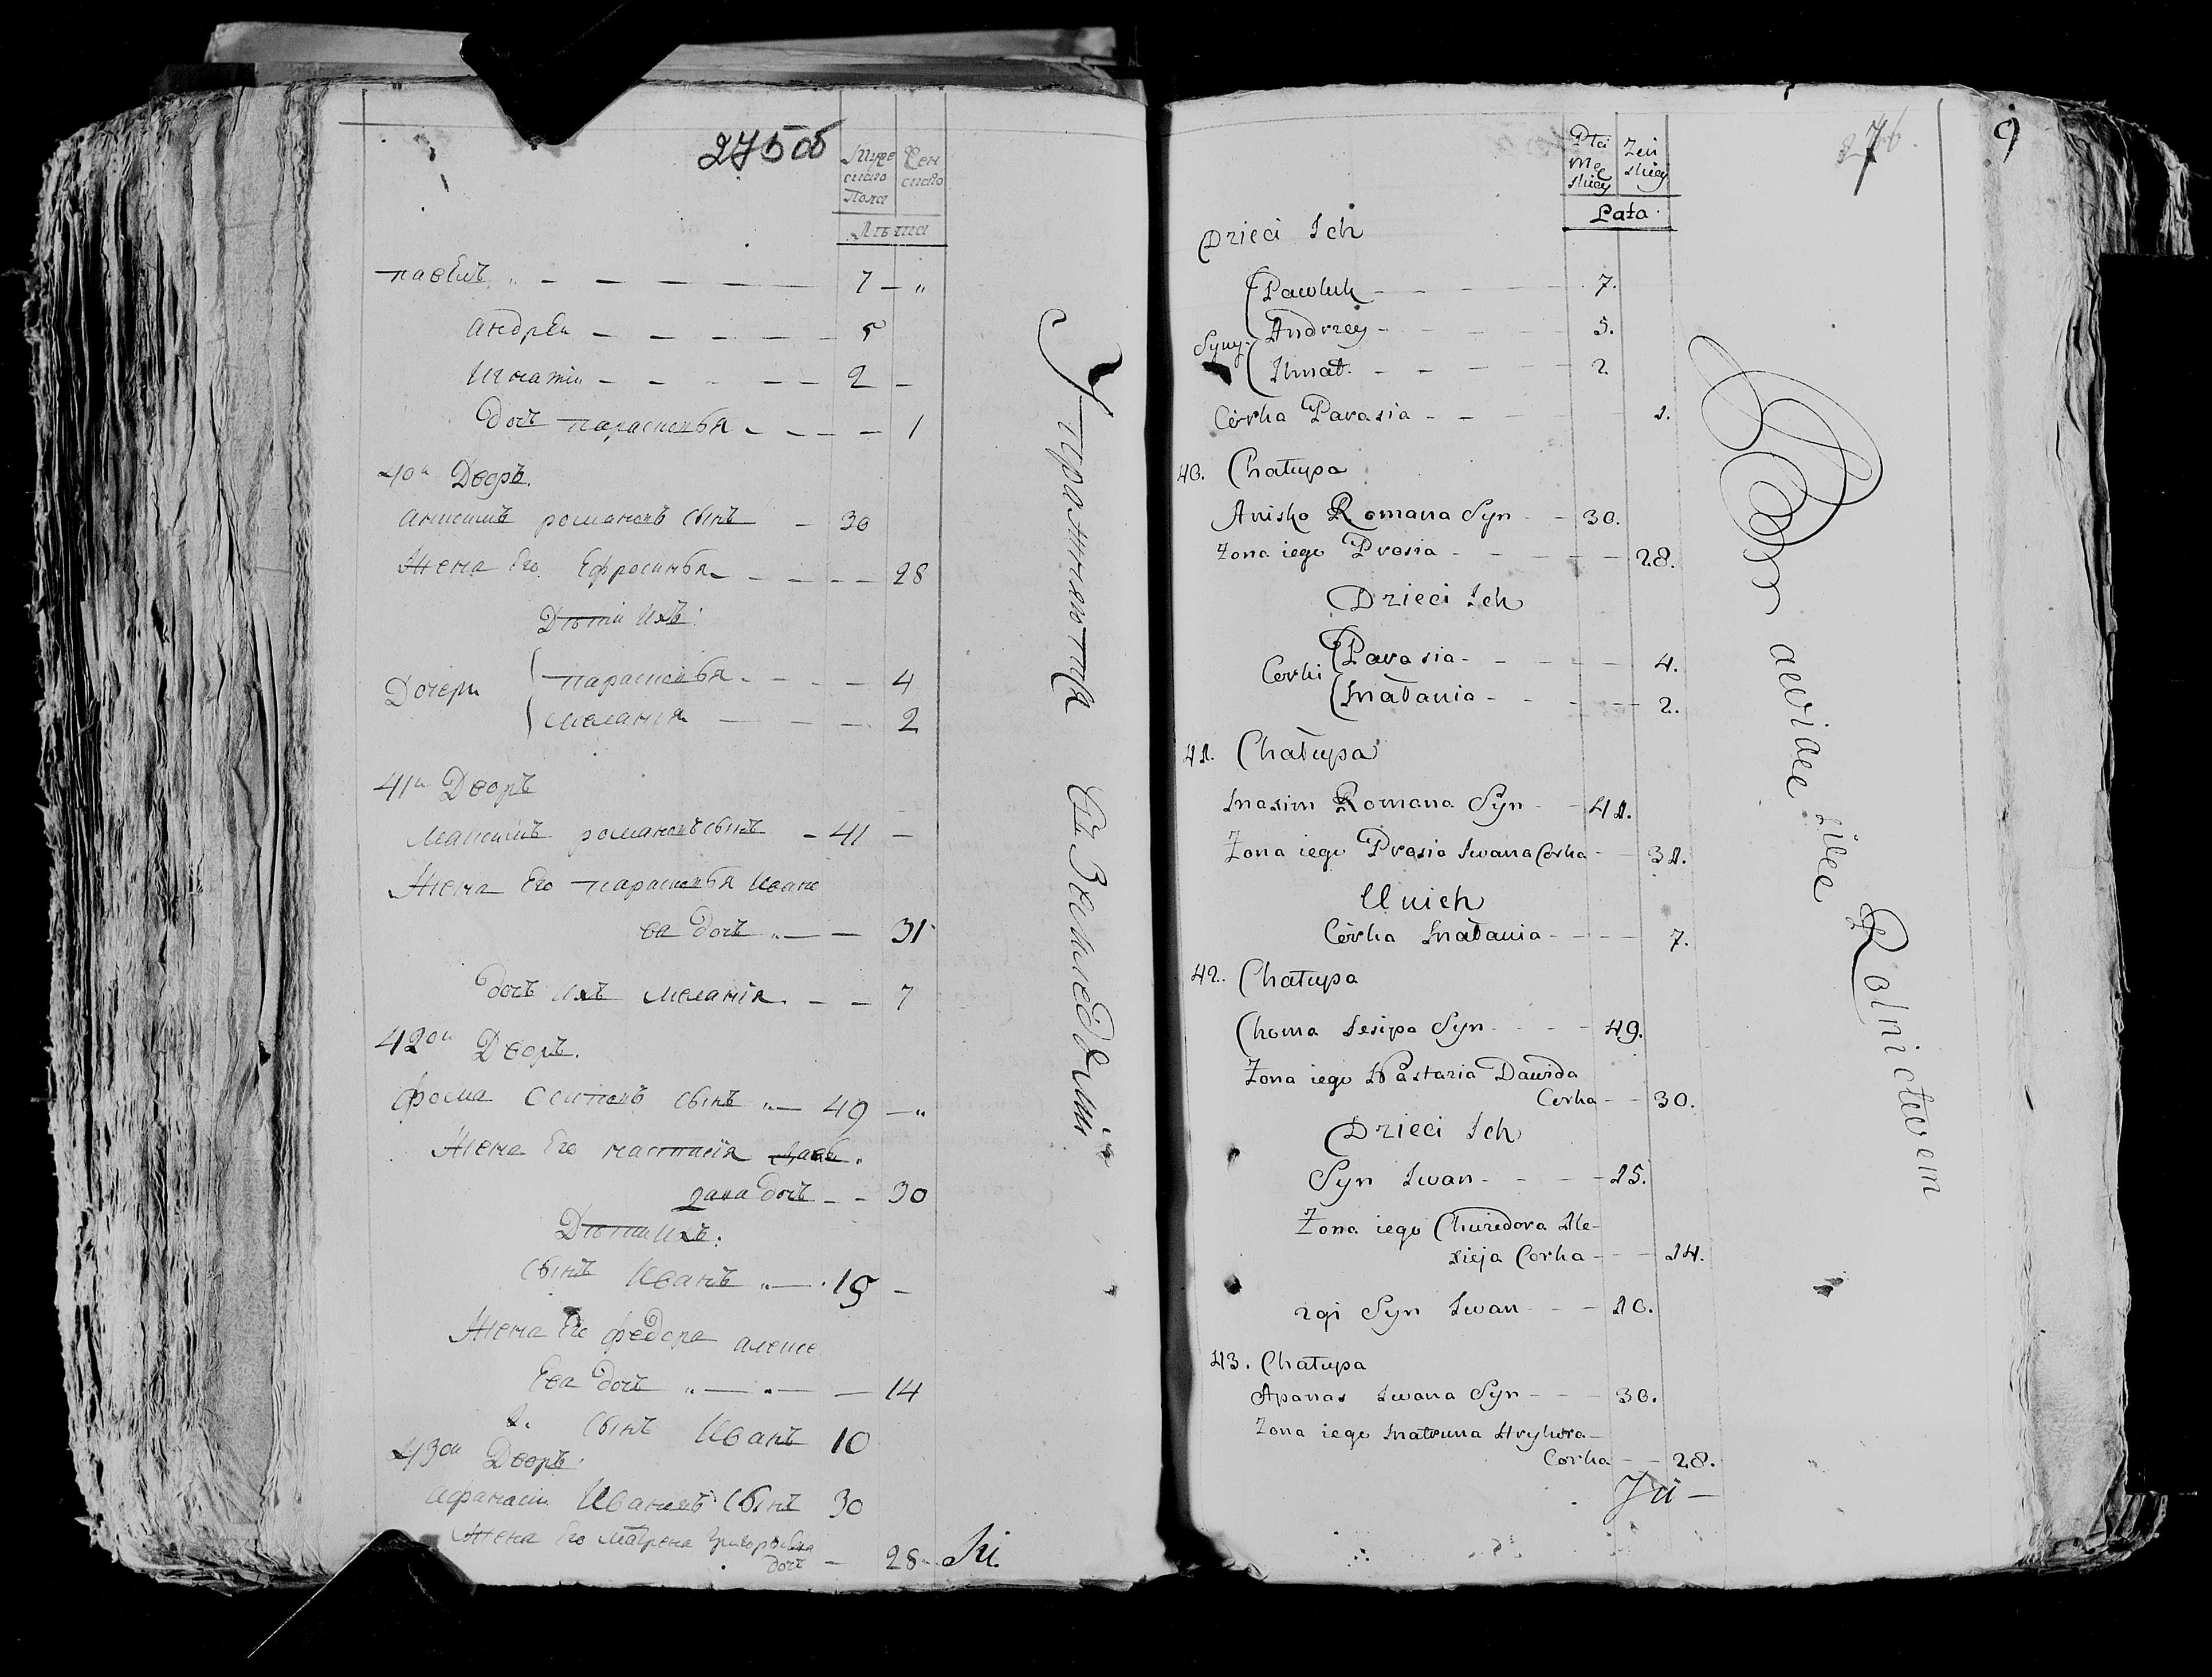 275 об
Муже Жен
ского ского
Пола
Лѣта
павелъ „ — — — — — 7 — „
андреи — — — — — 5
Игнатіи — — — — — 2 —
дочь параскевья — — — — 1
40й Дворъ.
анисимъ романовъ сынъ — 30
Жена Его Ефросинья — — — — 28
Дѣти ихъ:
Дочери { параскевья — — — — 4
{ меланія — — — 2
41й Дворъ
Максимъ романовъ сынъ — 41 —
Жена Его параскевья Ивано
ва дочь „ — — 31
дочь ихъ меланія — — 7
42ои Дворъ.
фома Осиповъ сынъ „ — 49 — „
Жена Его настасія
дова дочь — — 30
Дѣти ихъ:
сынъ Иванъ „ — 15 —
Жена Его федора алексе
Ева дочь „ — „ — — 14
2. сынъ Иванъ 10
43ои Дворъ
афанасіи Ивановъ Сынъ 30
Жена Его матрена григорьева
дочь — 28
Упражняются Въ Земледѣліи
276.
9
Płci Żeń
męs skiey
skiey
Lata
Dzieci Ich
{ Pawluk — — — — 7.
Syny { Andrzey — — — — 5.
{ Ihnat. — — — — 2
Córka Parasia — — — 1.
40. Chałupa
Anisko Romana Syn — — 30.
Żona iego Prosia — — — — 28.
Dzieci Ich
Corki { Parasia — — — — 4.
{ Małania — — — — 2.
41. Chałupa
Maxim Romana Syn — — 41.
Żona iego Prosia Iwana Corka — — 31.
U nich
Córka Małania — — — — 7.
42. Chałupa
Choma Iesipa Syn — — — 49.
Żona iego Nastazia Dawida
Corka — — 30.
Dzieci Ich
Syn Iwan — — — 15.
Żona iego Chwiedora Ale-
xieja Corka — — — 14.
2gi Syn Iwan — — — 10.
43. Chałupa
Apanas Iwana Syn — — — 30.
Żona iego Matruna Hryhora —
Corka — — 28.
Rolnictwem